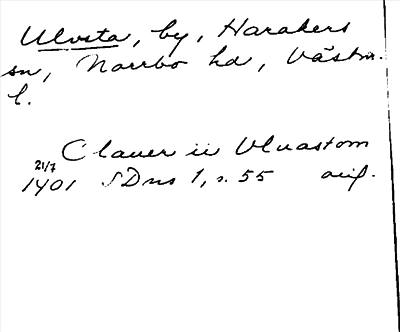 Ulvsta, by, Harakers
sn, Norrbo hd, Västm.
l.
Clauer ii Vluastom
21/7
1401 SDns 1, s. 55 orig.